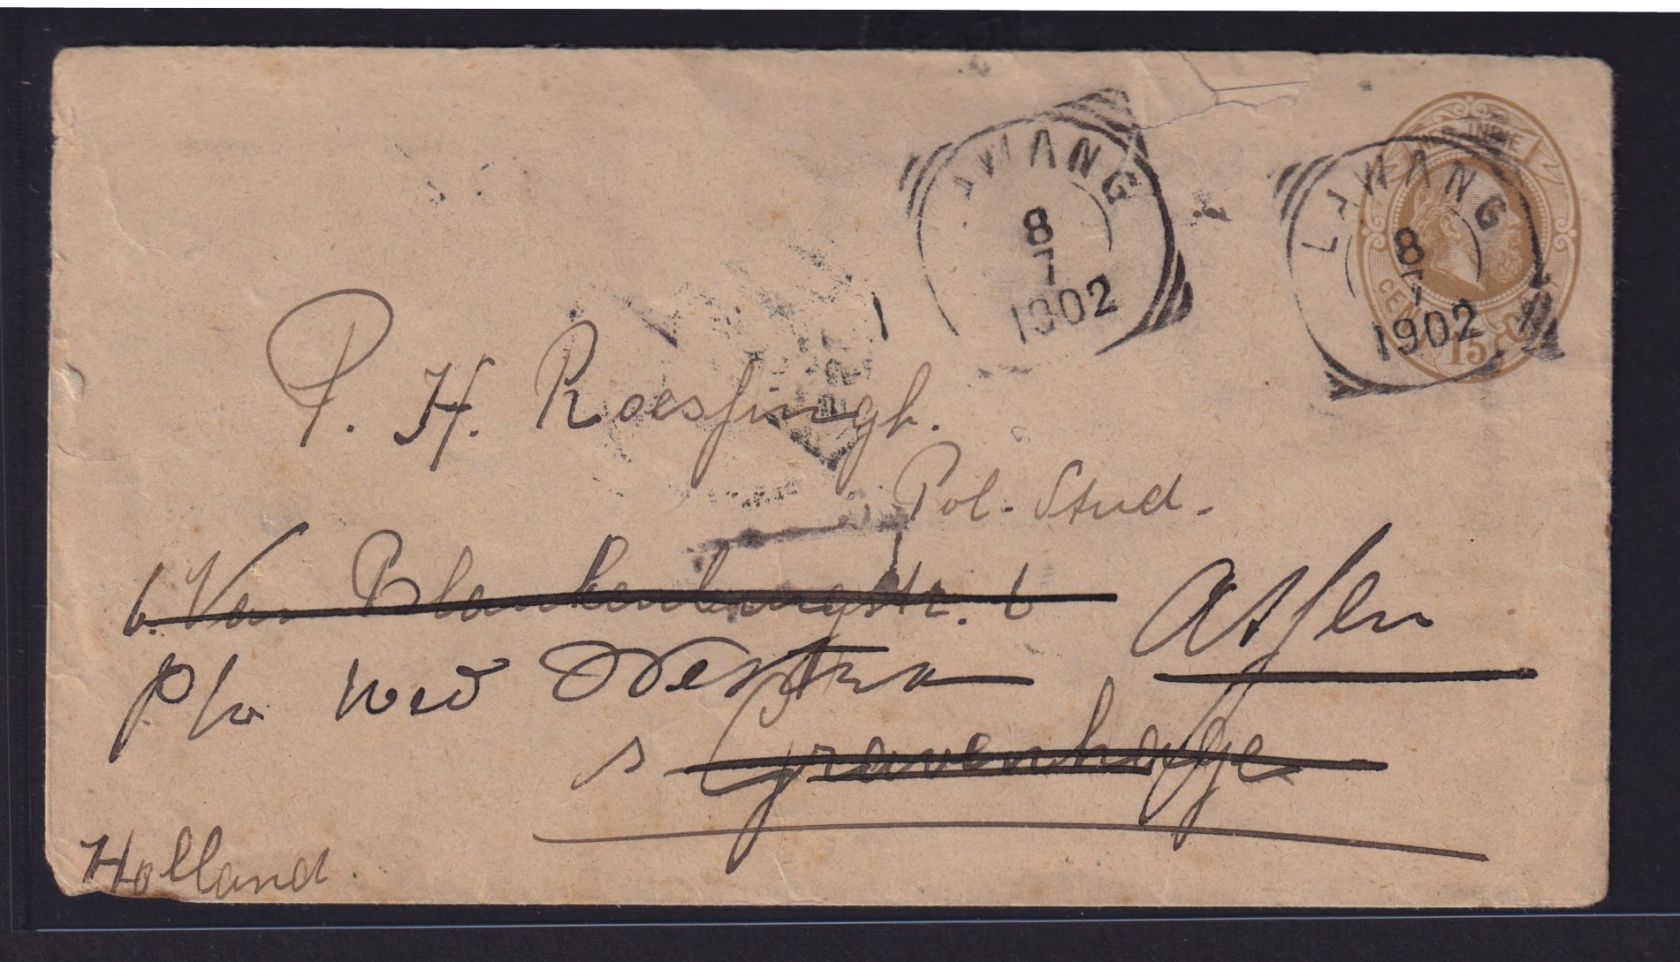 NED. INDIE
LAWANG
8
7
1902
LAWANG
8
7
1902
CENT
15
P. H. Roessingh.
Pol. Stud.
6. Van Blankenburgstr. 6
Assen
p/a wed
s Gravenhage
Holland.